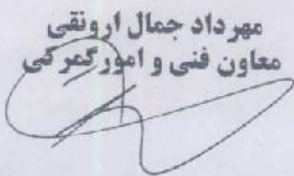 مهرداد جمال ارونقی
معاون فنی و امور گمرکی